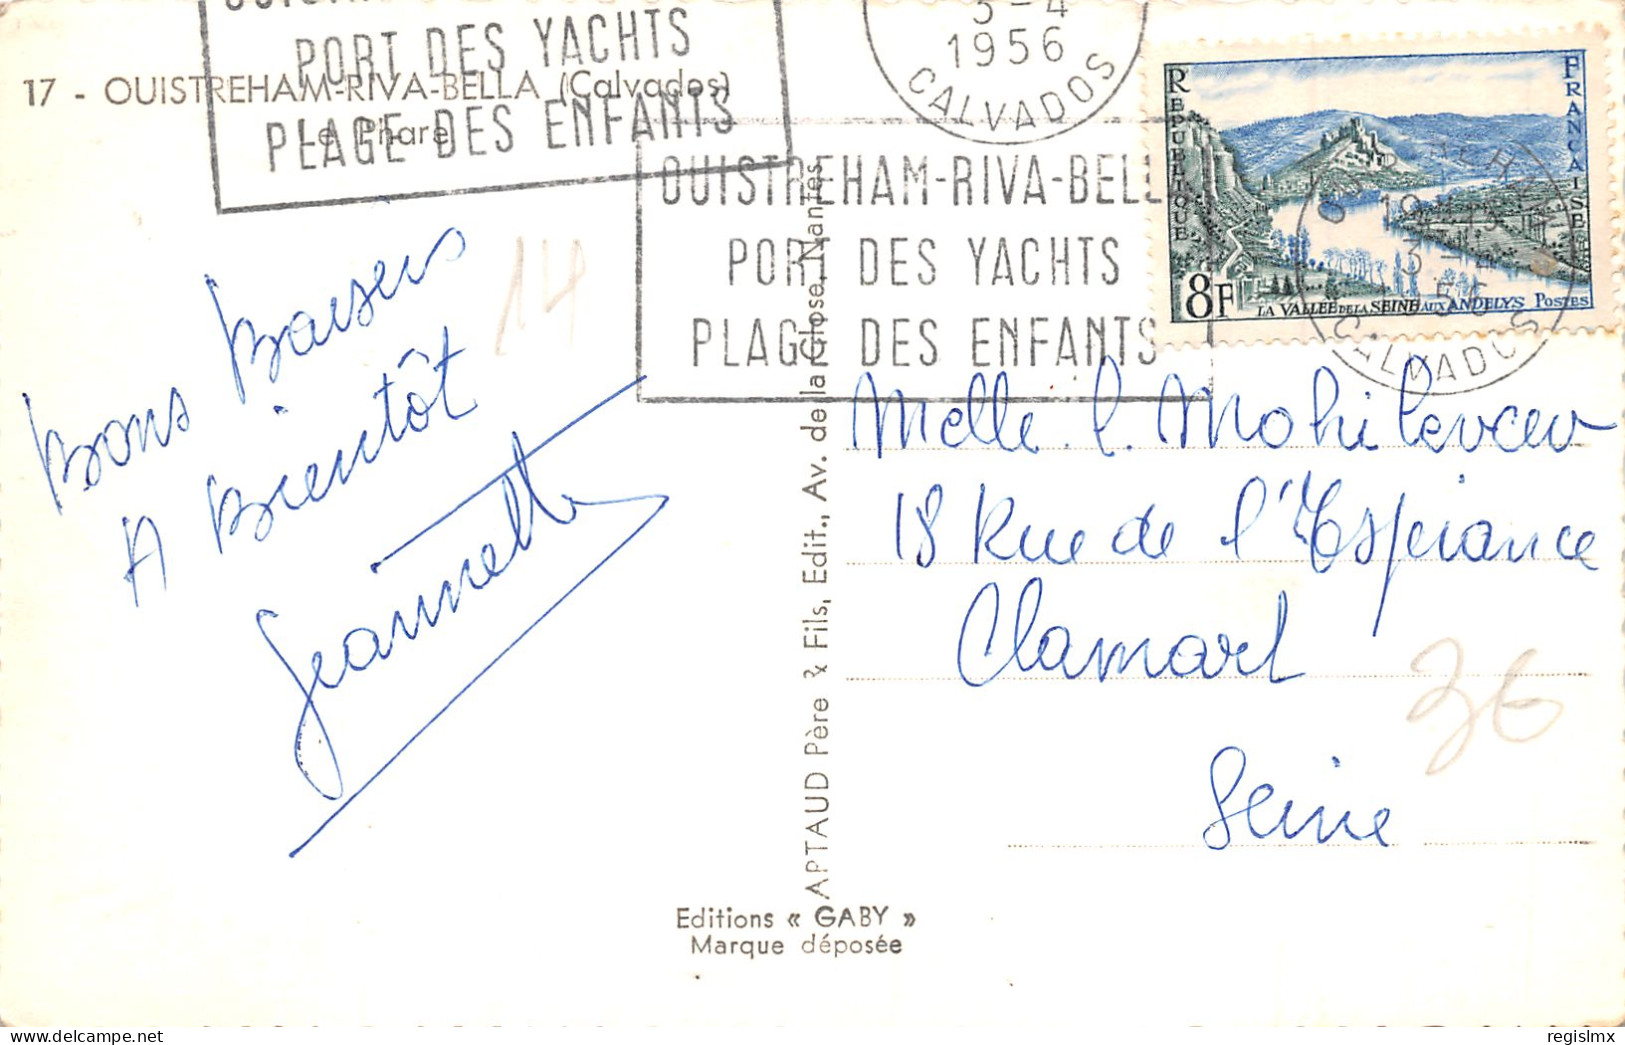 PORT DES YACHTS
PLAGE DES ENFANTS
17 - OUISTREHAM-RIVA-BELLA (Calvados)
Le Phare
3-4
1956
CALVADOS
OUISTREHAM-RIVA-BELL
PORT DES YACHTS
PLAGE DES ENFANTS
REPUBLIQUE
FRANCAISE
8F
LA VALLEE DE LA SEINE AUX ANDELYS POSTES
CALVADOS
Bons Baisers
A Bientôt
Jeannette
14
APTAUD Père & Fils, Edit., Av. de la Close, Nantes
Melle. l. Mohilevcev
18 Rue de l'Espérance
Clamart
Seine
36
Editions « GABY »
Marque déposée
delcampe.net
regislmx